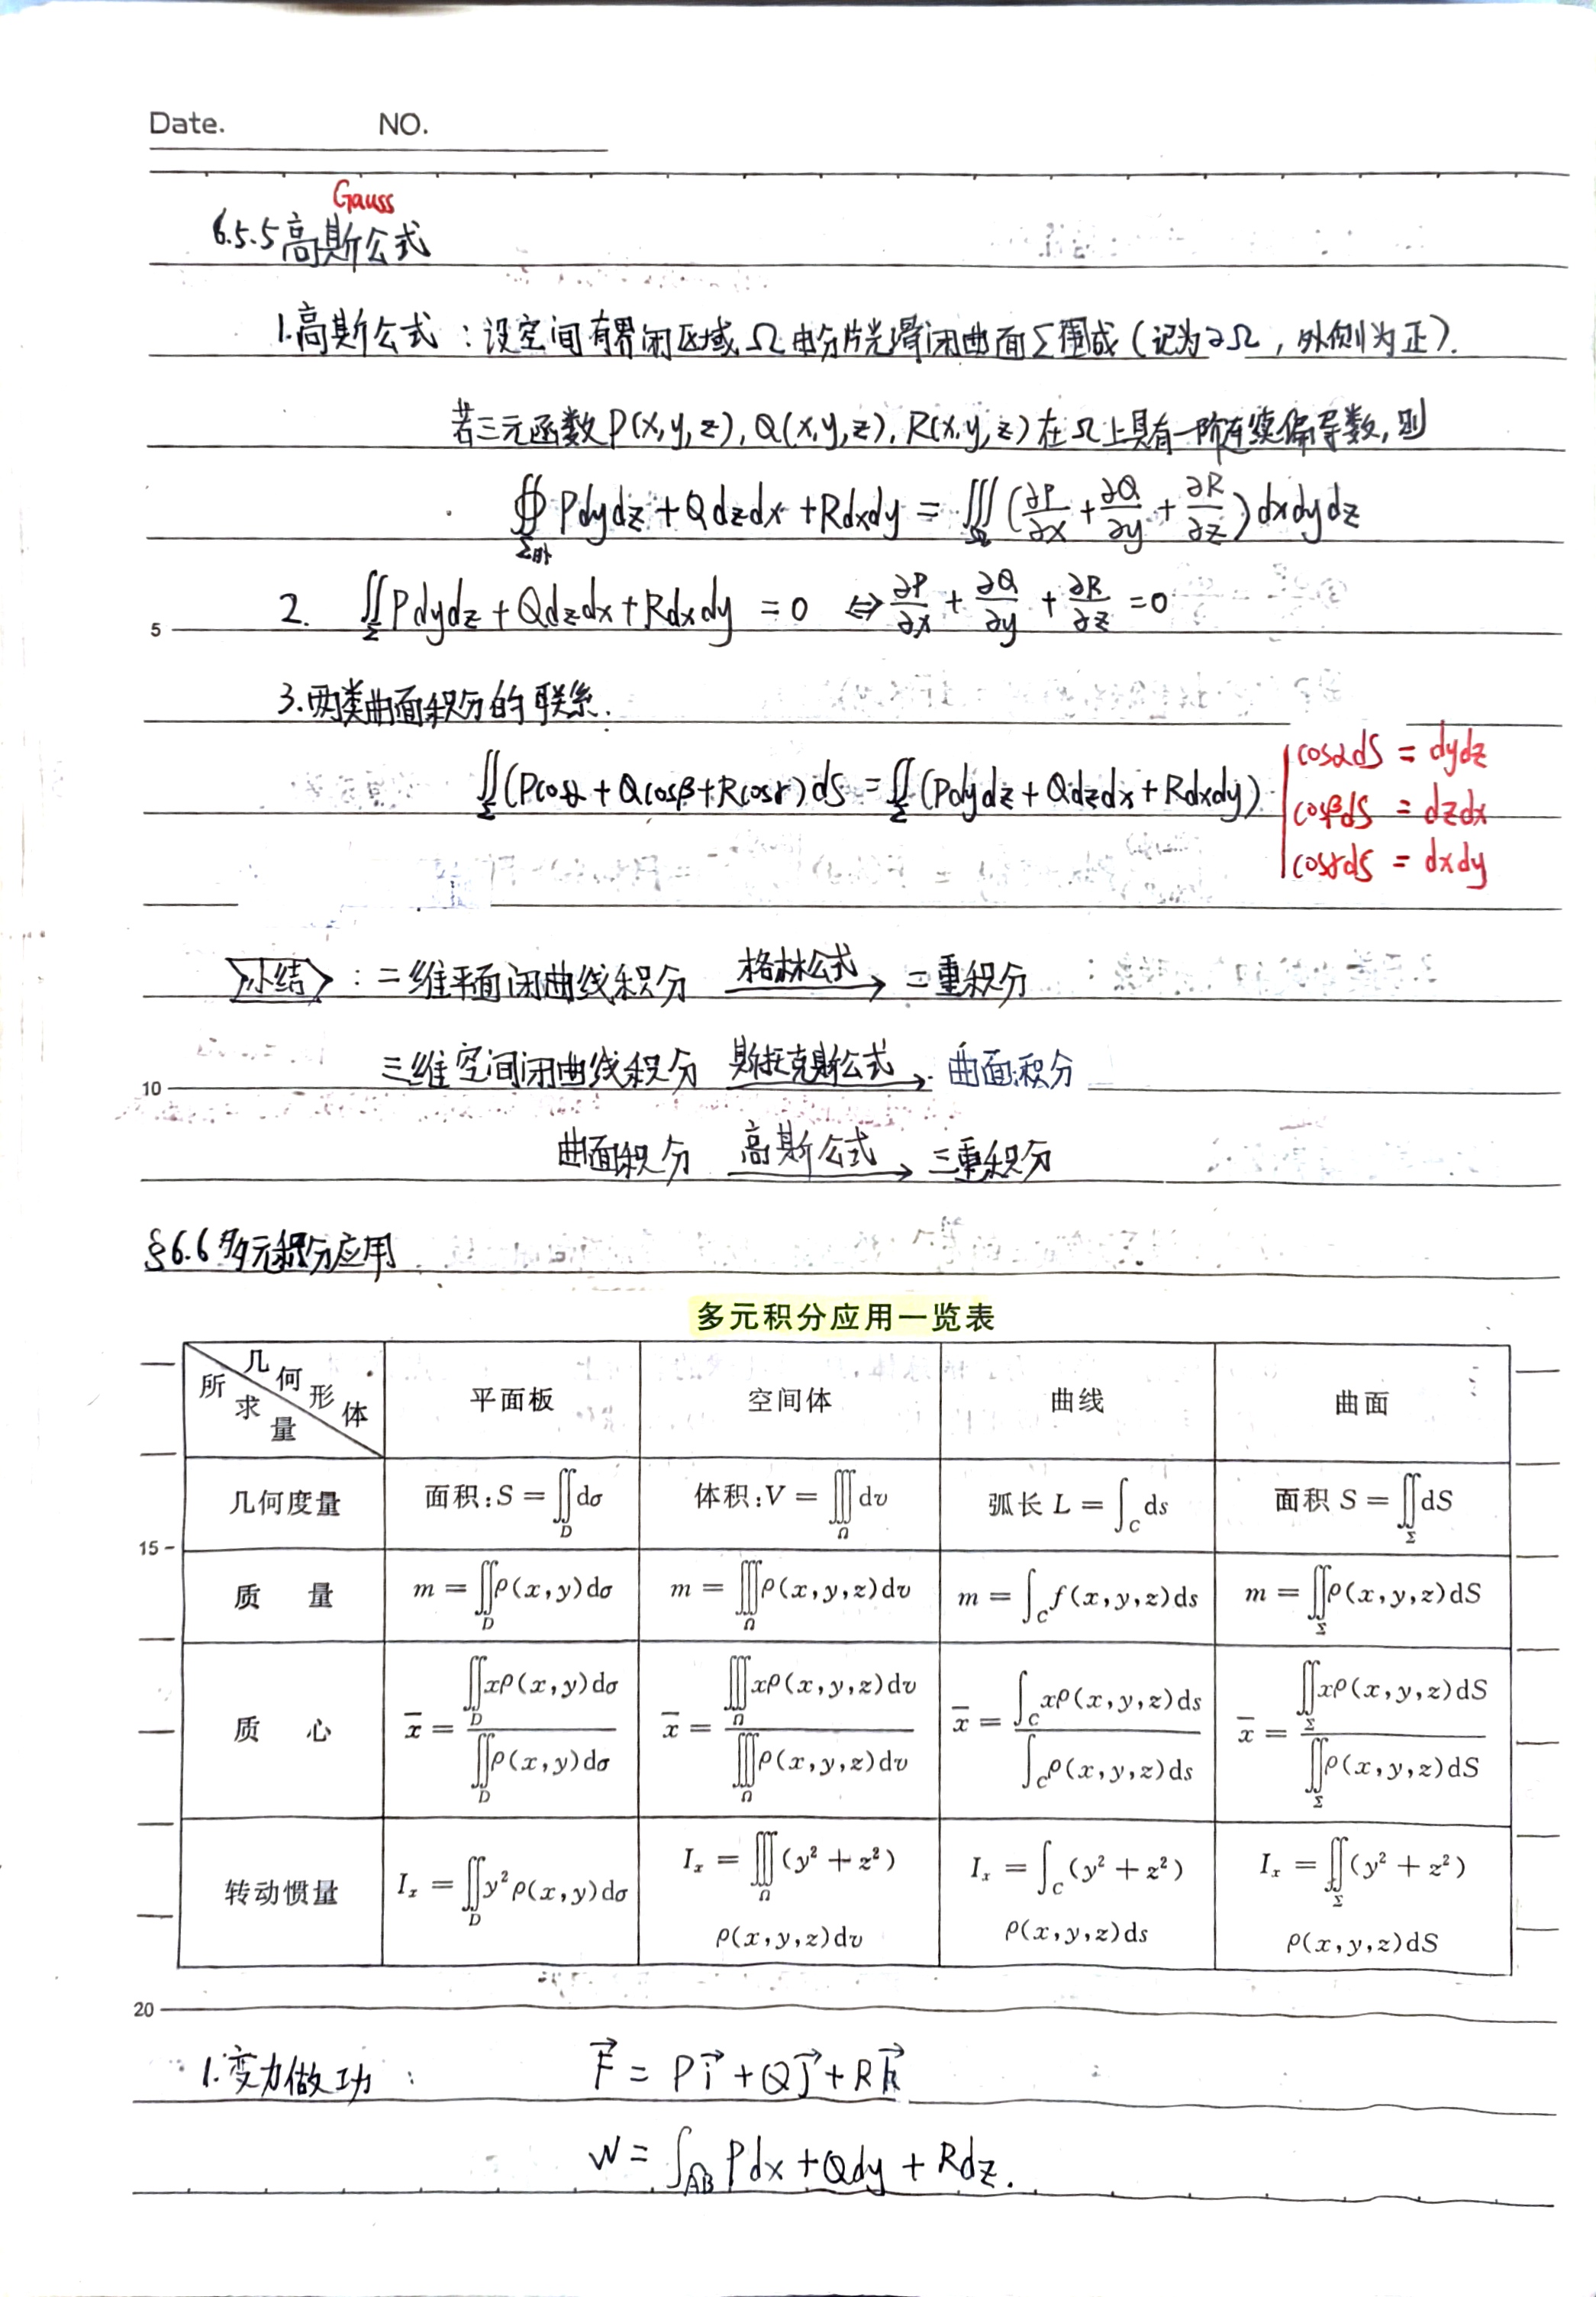 Date. NO.
Gauss
6.5.5 高斯公式
1.高斯公式：设空间有界闭区域Ω由分片光滑闭曲面Σ围成（记为∂Ω，外侧为正）.
若三元函数P(x,y,z), Q(x,y,z), R(x,y,z)在Ω上具有一阶连续偏导数,则
∯_{Σ外} Pdydz + Qdzdx + Rdxdy = ∭_Ω (∂P/∂x + ∂Q/∂y + ∂R/∂z) dxdydz
2. ∬_Σ Pdydz + Qdzdx + Rdxdy = 0 ⇔ ∂P/∂x + ∂Q/∂y + ∂R/∂z = 0
5
3.两类曲面积分的联系.
∬_Σ (Pcosα + Qcosβ + Rcosγ) dS = ∬_Σ (Pdydz + Qdzdx + Rdxdy)
cosαdS = dydz
cosβdS = dzdx
cosγdS = dxdy
小结：二维平面闭曲线积分 格林公式→ 二重积分
三维空间闭曲线积分 斯托克斯公式→ 曲面积分
10
曲面积分 高斯公式→ 三重积分
§6.6 多元积分应用
多元积分应用一览表
几何形体 所求量 平面板 空间体 曲线 曲面
几何度量 面积:S = ∬_D dσ 体积:V = ∭_Ω dv 弧长 L = ∫_C ds 面积 S = ∬_Σ dS
15
质 量 m = ∬_D ρ(x,y)dσ m = ∭_Ω ρ(x,y,z)dv m = ∫_C f(x,y,z)ds m = ∬_Σ ρ(x,y,z)dS
质 心 x̄ = ∬_D xρ(x,y)dσ / ∬_D ρ(x,y)dσ x̄ = ∭_Ω xρ(x,y,z)dv / ∭_Ω ρ(x,y,z)dv x̄ = ∫_C xρ(x,y,z)ds / ∫_C ρ(x,y,z)ds x̄ = ∬_Σ xρ(x,y,z)dS / ∬_Σ ρ(x,y,z)dS
转动惯量 I_x = ∬_D y²ρ(x,y)dσ I_x = ∭_Ω (y² + z²) ρ(x,y,z)dv I_x = ∫_C (y² + z²) ρ(x,y,z)ds I_x = ∬_Σ (y² + z²) ρ(x,y,z)dS
20
1.变力做功： F⃗ = Pi⃗ + Qj⃗ + Rk⃗
W = ∫_{AB} Pdx + Qdy + Rdz.